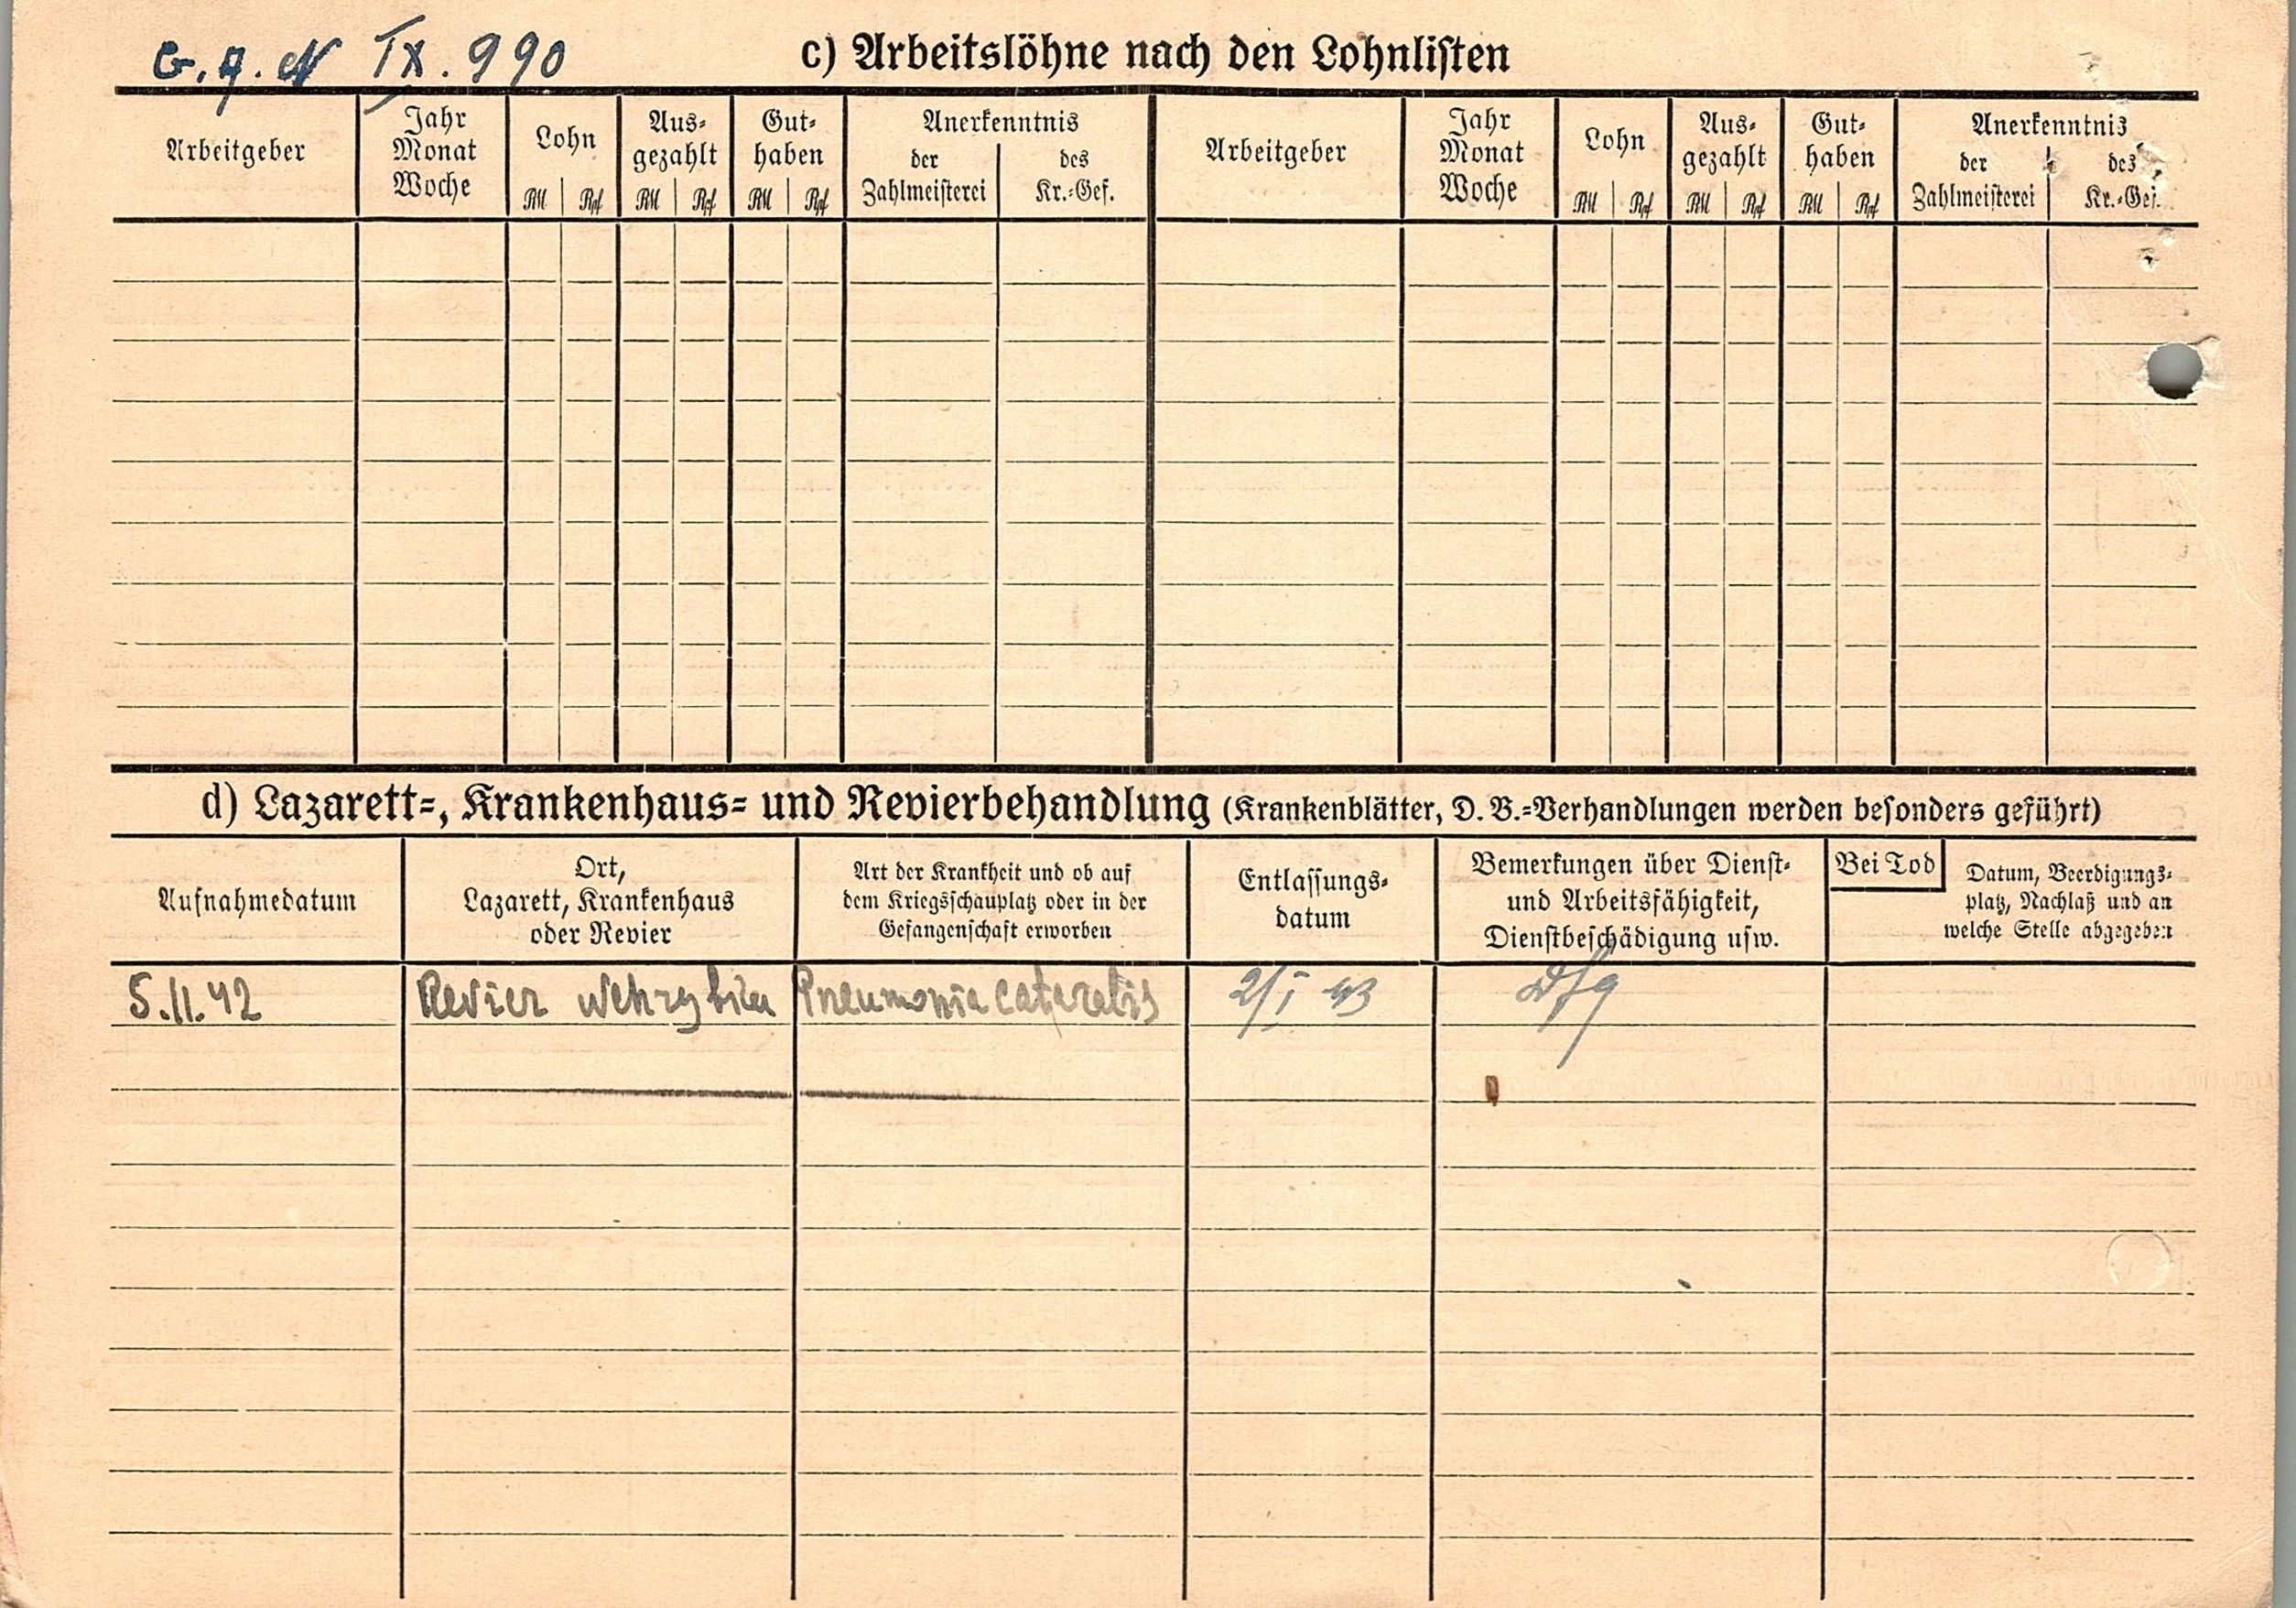 IX. 990
c) Arbeitslöhne nach den Lohnlisten
Arbeitgeber
Jahr
Monat
Woche
Lohn
RM Rpf
Aus-
gezahlt
RM Rpf
Gut-
haben
RM Rpf
Anerkenntnis
der
Zahlmeisterei
des
Kr.-Gef.
Arbeitgeber
Jahr
Monat
Woche
Lohn
RM Rpf
Aus-
gezahlt
RM Rpf
Gut-
haben
RM Rpf
Anerkenntnis
der
Zahlmeisterei
des
Kr.-Gef.
d) Lazarett-, Krankenhaus- und Revierbehandlung (Krankenblätter, D. B.-Verhandlungen werden besonders geführt)
Aufnahmedatum
Ort,
Lazarett, Krankenhaus
oder Revier
Art der Krankheit und ob auf
dem Kriegsschauplatz oder in der
Gefangenschaft erworben
Entlassungs-
datum
Bemerkungen über Dienst-
und Arbeitsfähigkeit,
Dienstbeschädigung usw.
Bei Tod
Datum, Beerdigungs-
platz, Nachlaß und an
welche Stelle abgegeben
5.11.42 Revier Pneumonia 2/I 43